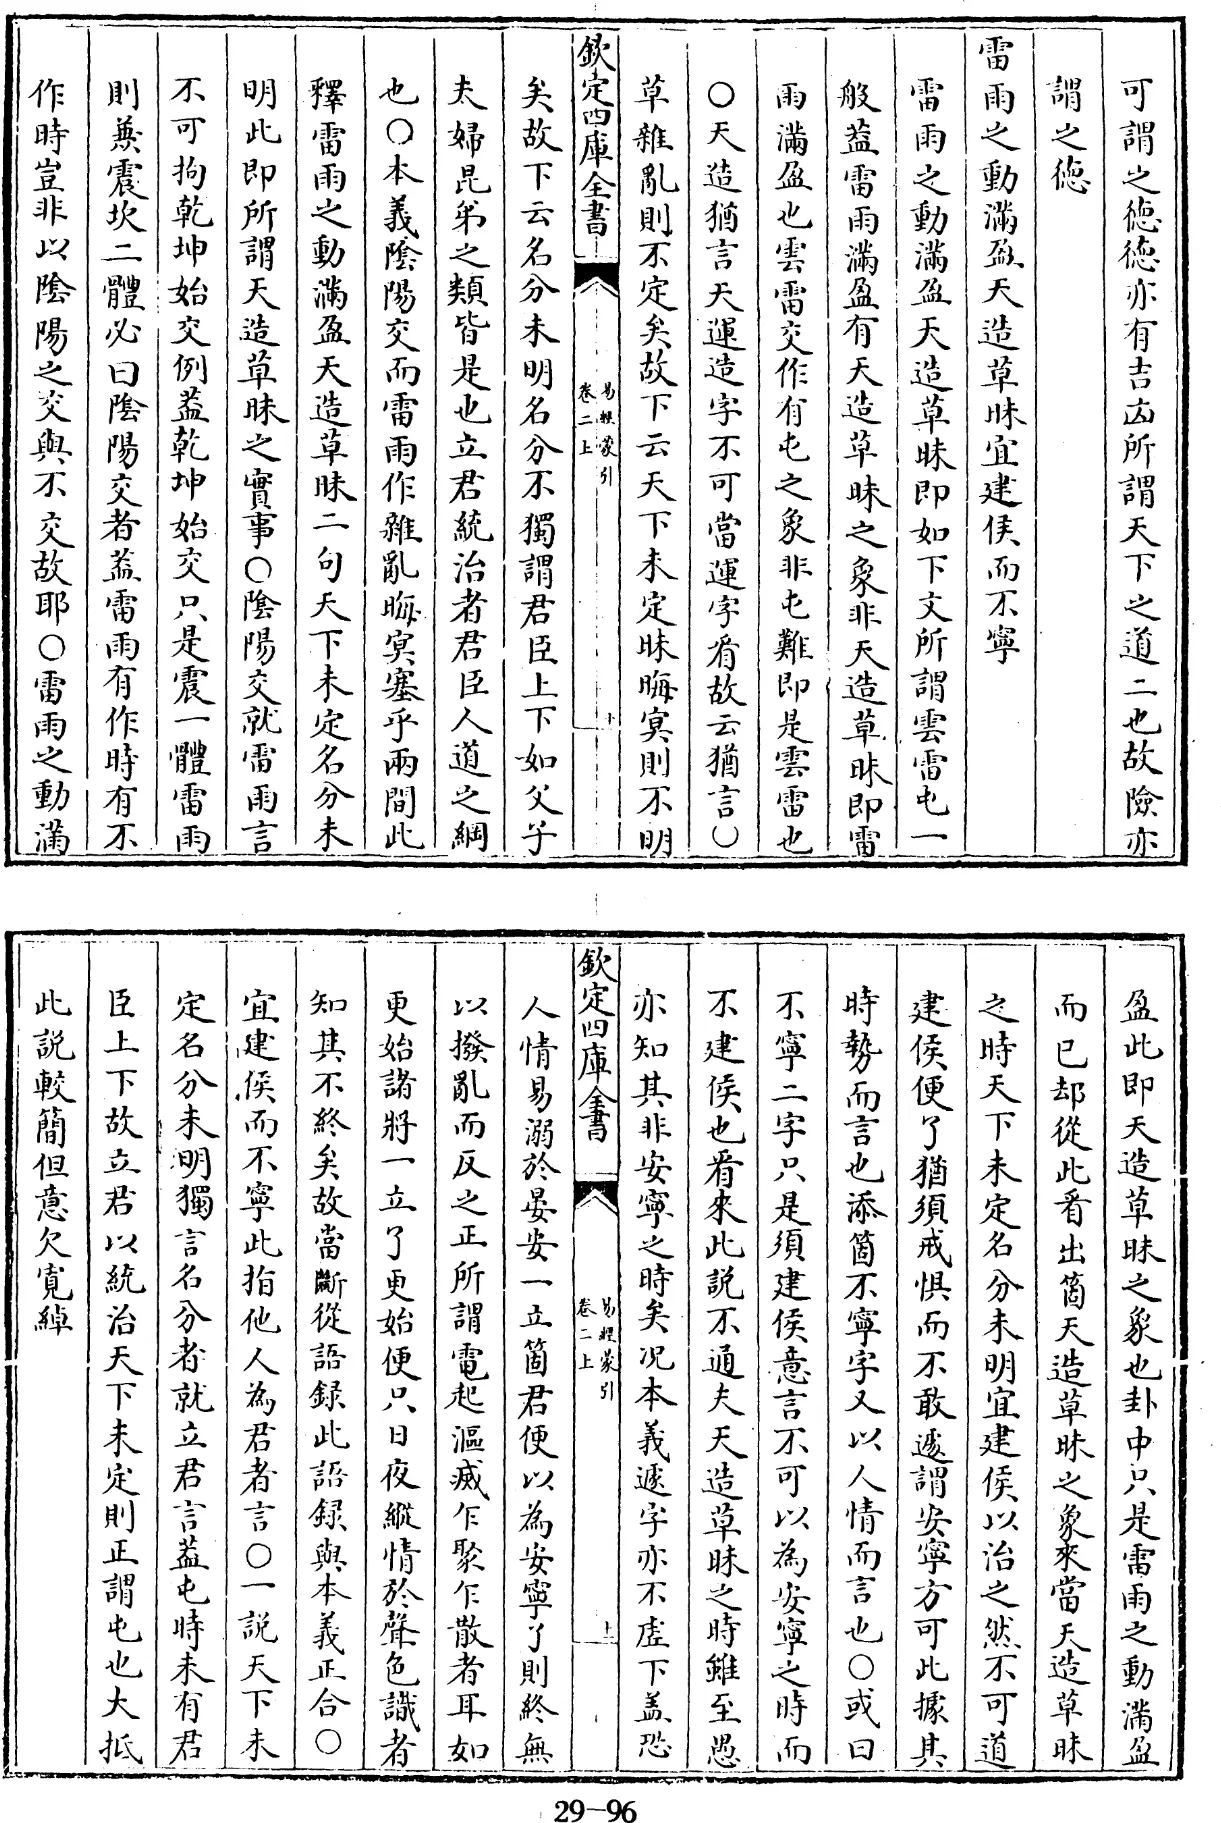 可謂之德德亦有吉凶所謂天下之道二也故險亦
謂之德
雷雨之動滿盈天造草昧宜建侯而不寧
雷雨之動滿盈天造草昧即如下文所謂雲雷屯一
般葢雷雨滿盈有天造草昧之象非天造草昧即雷
雨滿盈也雲雷交作有屯之象非屯難即是雲雷也
○天造猶言天運造字不可當運字看故云猶言○
草雜亂則不定矣故下云天下未定昧晦冥則不明
欽定四庫全書
易經蒙引
卷二上
十
矣故下云名分未明名分不獨謂君臣上下如父子
夫婦昆弟之類皆是也立君統治者君臣人道之綱
也○本義陰陽交而雷雨作雜亂晦冥塞乎兩間此
釋雷雨之動滿盈天造草昧二句天下未定名分未
明此即所謂天造草昧之實事○陰陽交就雷雨言
不可拘乾坤始交例葢乾坤始交只是震一體雷雨
則兼震坎二體必曰陰陽交者葢雷雨有作時有不
作時豈非以陰陽之交與不交故耶○雷雨之動滿
盈此即天造草昧之象也卦中只是雷雨之動滿盈
而已却從此看出箇天造草昧之象來當天造草昧
之時天下未定名分未明宜建侯以治之然不可道
建侯便了猶須戒惧而不敢遽謂安寧方可此據其
時勢而言也添箇不寧字又以人情而言也○或曰
不寧二字只是須建侯意言不可以為安寧之時而
不建侯也看來此説不通夫天造草昧之時雖至愚
亦知其非安寧之時矣况本義遽字亦不虛下盖恐
欽定四庫全書
易經蒙引
卷二上
十
人情易溺於晏安一立箇君便以為安寧了則終無
以撥亂而反之正所謂電起漚滅乍聚乍散者耳如
更始諸將一立了更始便只日夜縱情於聲色識者
知其不終矣故當斷從語録此語録與本義正合○
宜建侯而不寧此指他人為君者言○一説天下未
定名分未明獨言名分者就立君言葢屯時未有君
臣上下故立君以統治天下未定則正謂屯也大抵
此説較簡但意欠寛綽
29-96